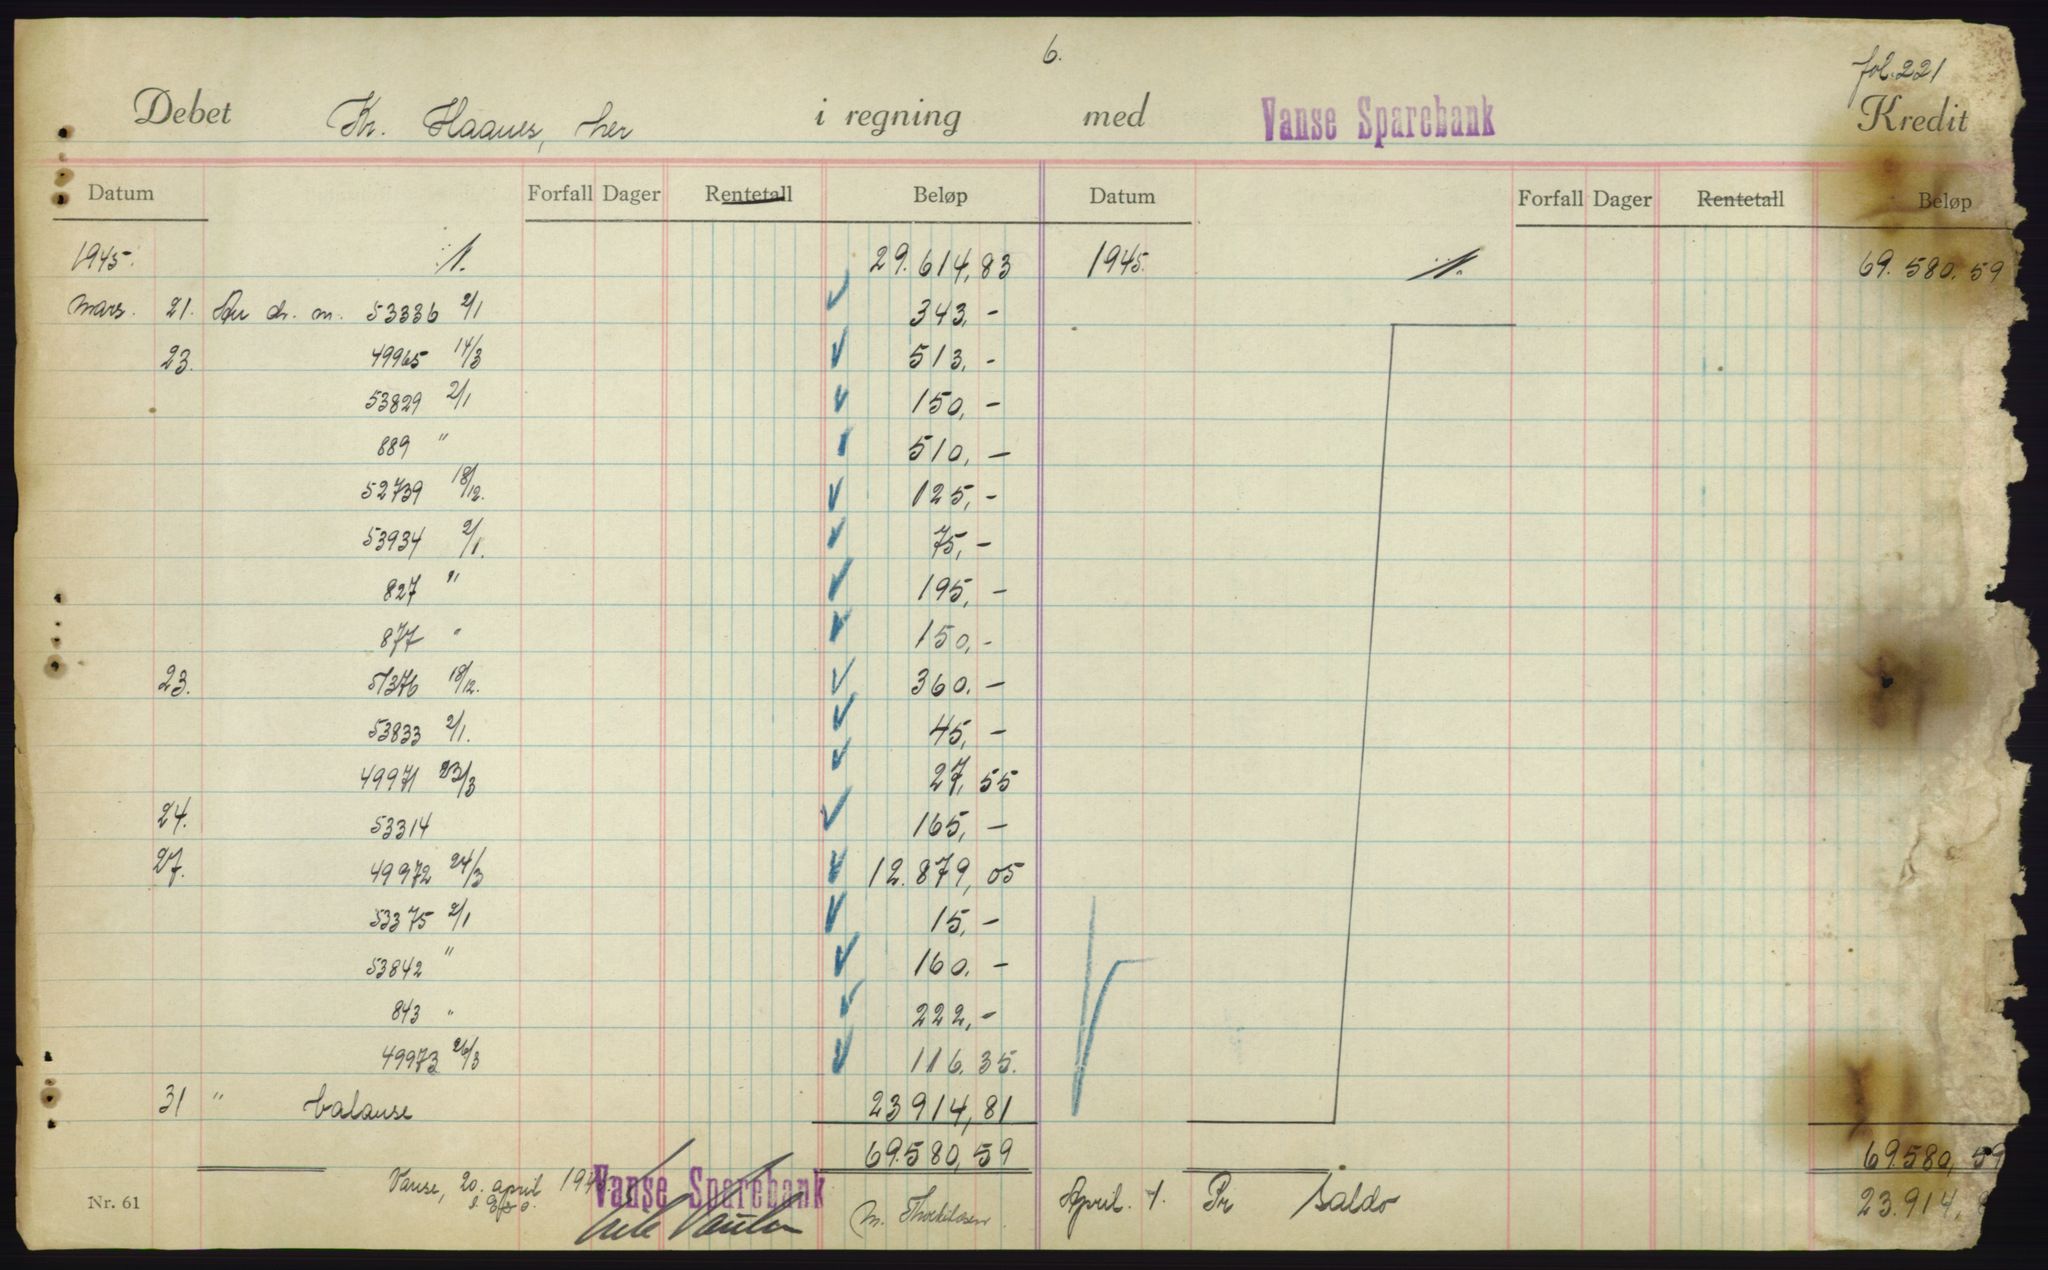 6.
fol. 221
Debet Kr. Haanes, her i regning med Vanse Sparebank Kredit
Datum Forfall Dager Rentetall Beløp Datum Forfall Dager Rentetall Beløp
1945. ./. 29.614,83 1945. ./. 69.580.59
Mars. 21. dr. m. 53336 2/1 343,-
23. 49965 14/3 513,-
53829 2/1 150,-
889 " 510,-
52739 18/12. 125,-
53934 2/1. 75,-
827 " 195,-
877 " 150,-
23. 51376 18/12. 360.-
53833 2/1. 45,-
49971 23/3 27,55
24. 53314 165,-
27. 49972 24/3 12.879,05
53375 2/1 15,-
53842 " 160.-
843 " 222,-
49973 26/3 116.35.
31 " balanse 23914,81
69.580,59 69.580,59
Vanse, 20. april Vanse Sparebank April. 1. Pr saldo 23.914,
Nr. 61 M.